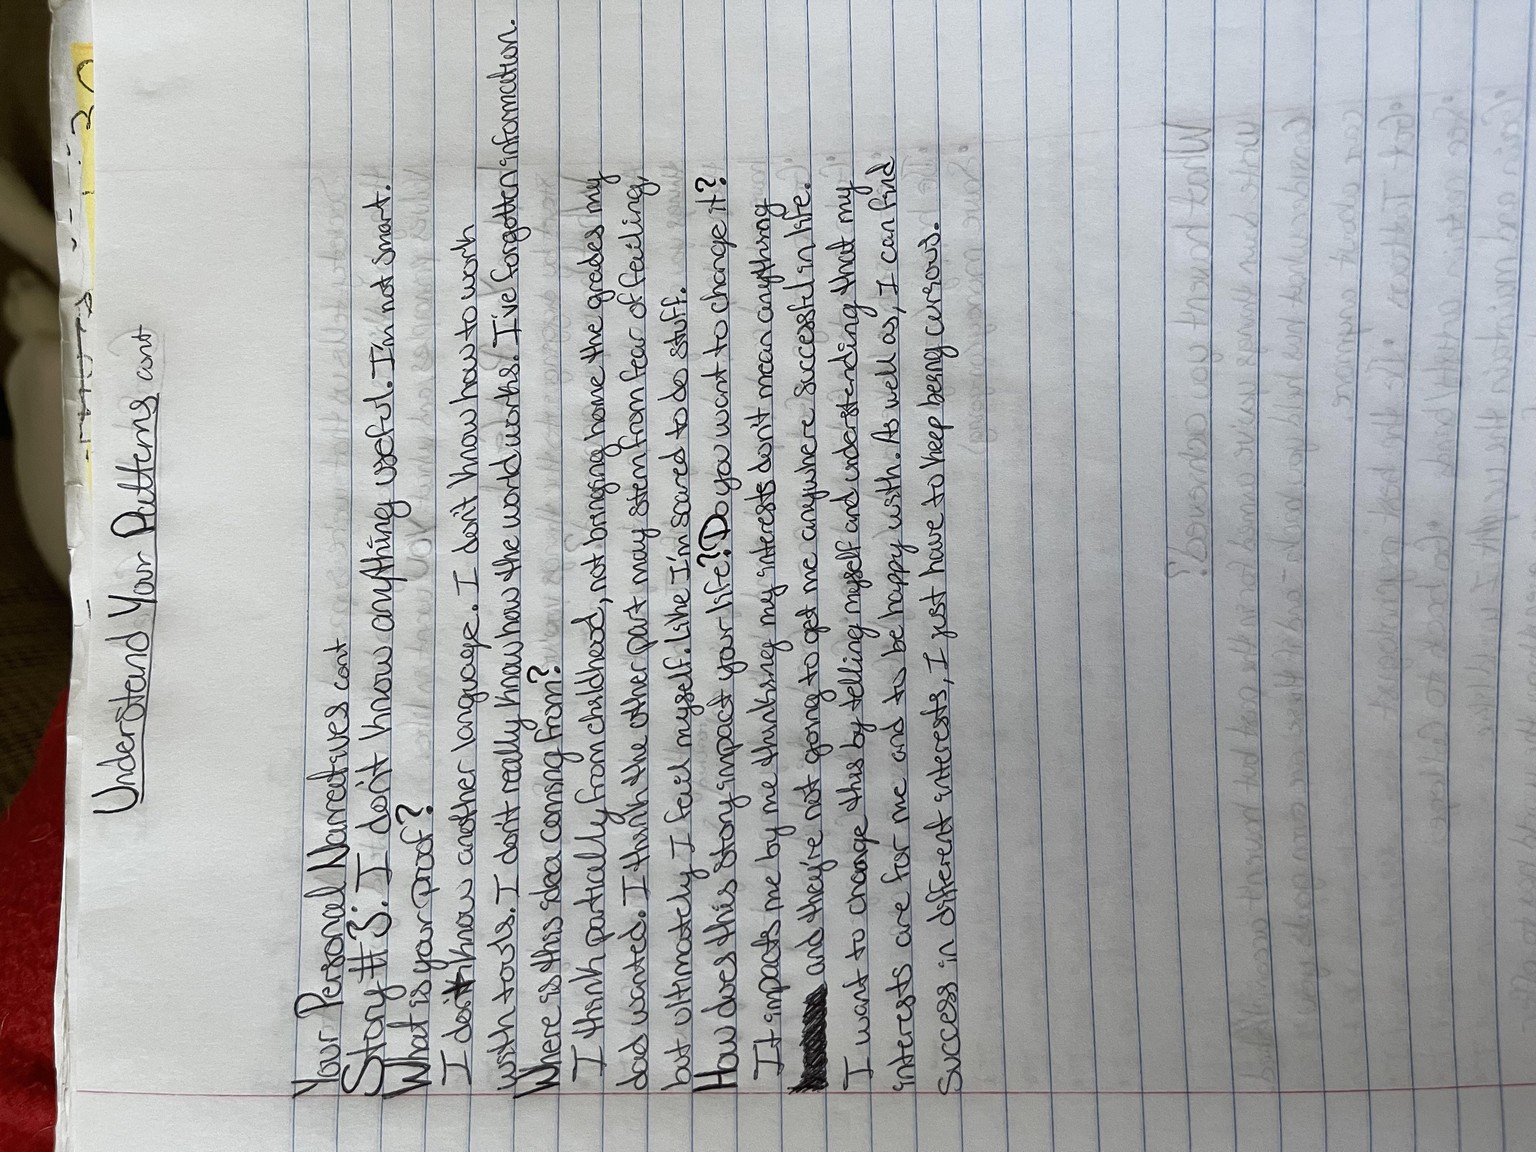 Understand Your Patterns cont
Your Personal Narratives cont
Story #3: I don't know anything useful. I'm not smart.
What is your proof?
I don't know another language. I don't know how to work
with tools. I don't really know how the world works. I've forgotten information.
Where is this idea coming from?
I think partially from childhood, not bringing home the grades my
dad wanted. I think the other part may stem from fear of failing,
but ultimately I fail myself. Like I'm scared to do stuff.
How does this story impact your life? Do you want to change it?
It impacts me by me thinking my interests don't mean anything
and they're not going to get me anywhere successful in life.
I want to change this by telling myself and understanding that my
interests are for me and to be happy with. As well as, I can find
success in different interests, I just have to keep being curious.